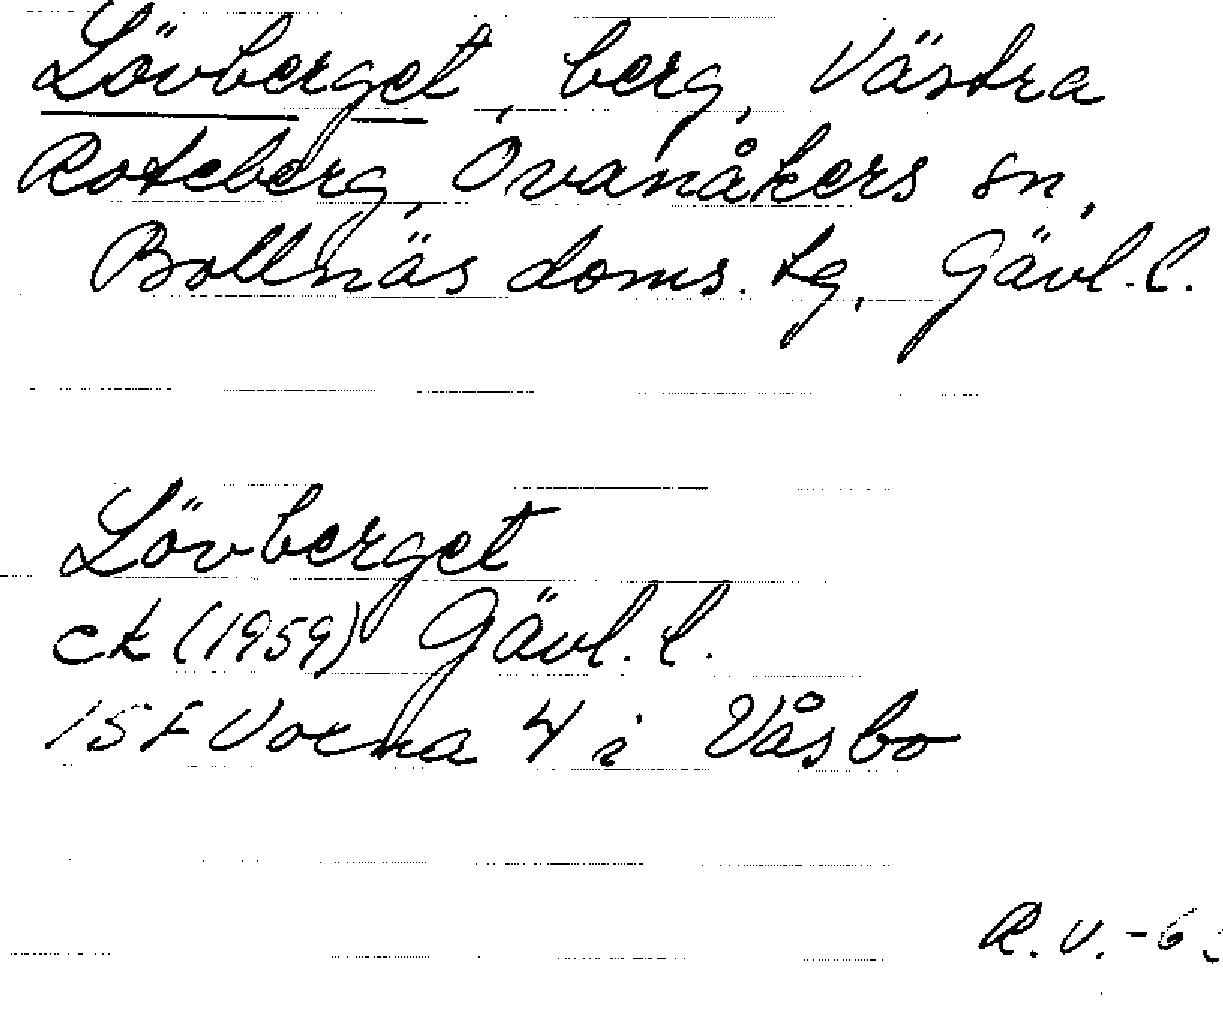 Lövberget, berg, Västra
Roteberg, Ovanåkers sn,
Bollnäs doms. tg, Gävl. l.
Lövberget
ek (1959) Gävl. l.
15F Voxna 4 i Våsbo
R.V. -6